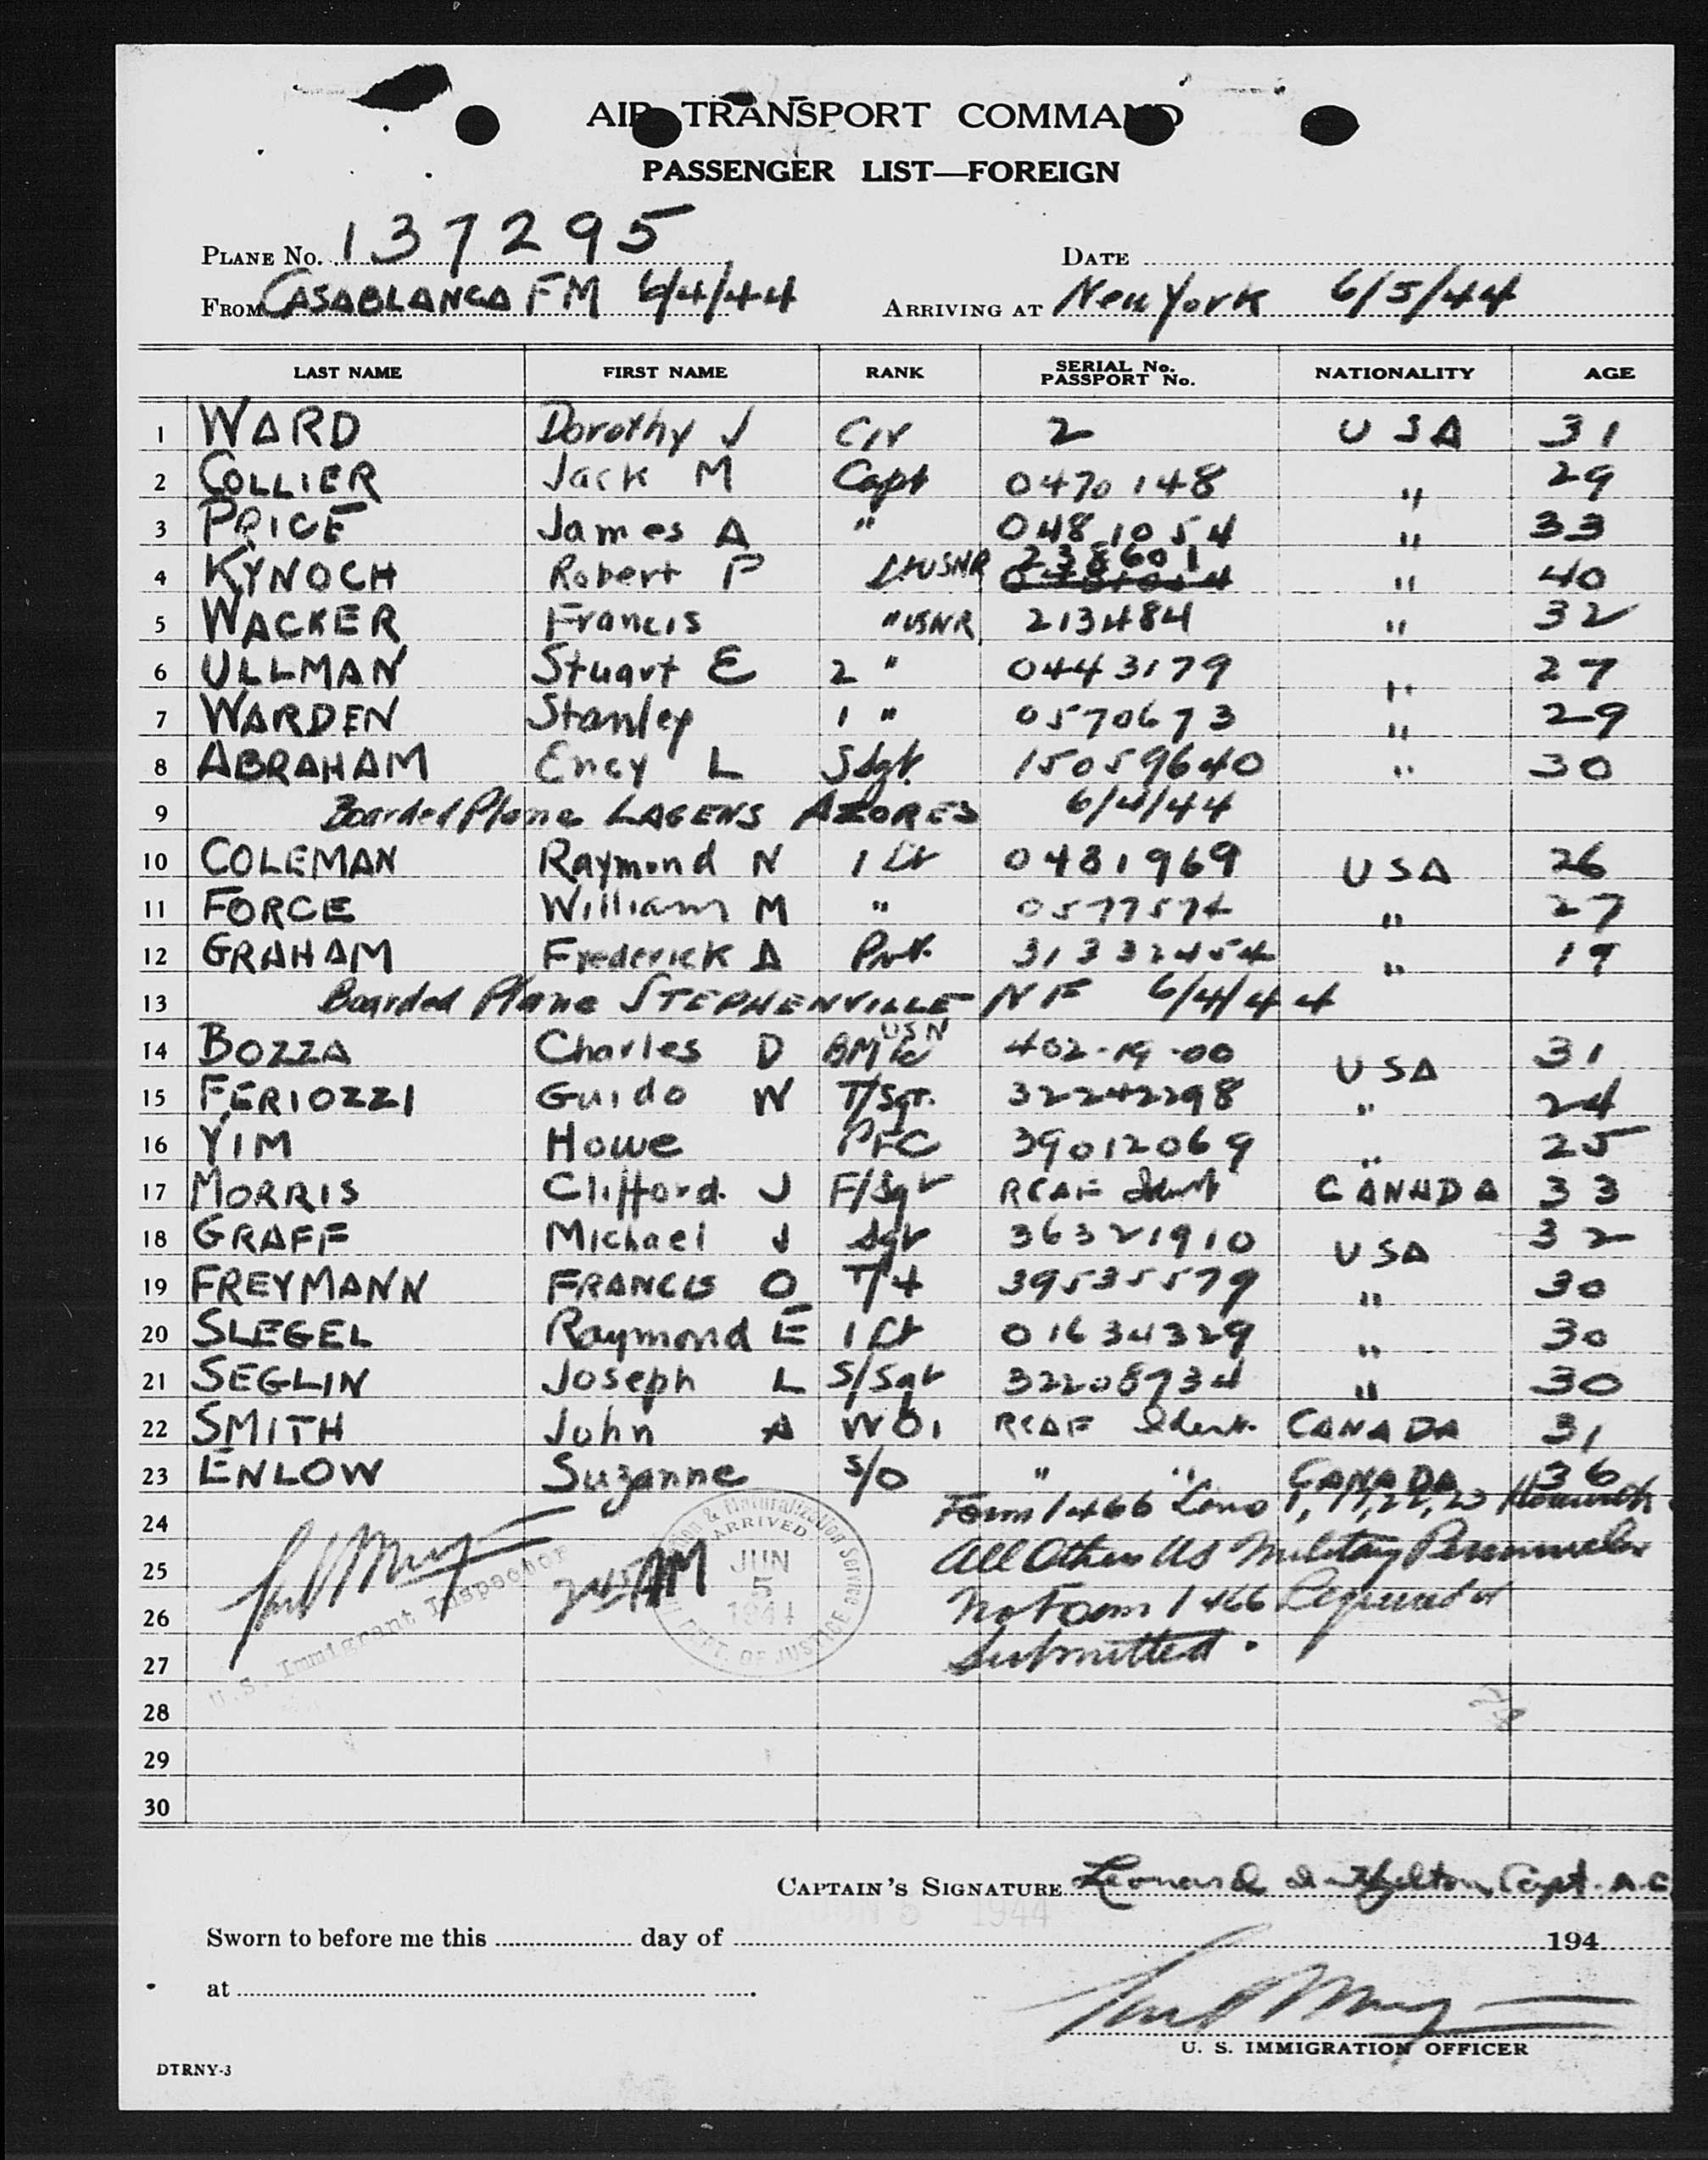 AIR TRANSPORT COMMAND
PASSENGER LIST—FOREIGN
PLANE No. 137295 DATE
FROM CASABLANCA FM 6/4/44 ARRIVING AT New York 6/5/44
LAST NAME FIRST NAME RANK SERIAL No. PASSPORT No. NATIONALITY AGE
1 WARD Dorothy J Civ 2 USA 31
2 COLLIER Jack M Capt 0470148 " 29
3 PRICE James A " 0481054 " 33
4 KYNOCH Robert P Lt USNR 238601 " 40
5 WACKER Francis " USNR 213484 " 32
6 ULLMAN Stuart E 2 " 0443179 " 27
7 WARDEN Stanley 1 " 0570673 " 29
8 ABRAHAM Ency L Sdgt. 15059640 " 30
9 Boarded Plane LAGENS AZORES 6/4/44
10 COLEMAN Raymond N 1 Lt 0481969 USA 26
11 FORCE William M " 0577574 " 27
12 GRAHAM Frederick A Pvt. 31332454 " 19
13 Boarded Plane STEPHENVILLE NF 6/4/44
14 BOZZA Charles D USN 402-19-00 USA 31
15 FERIOZZI Guido W T/Sgt. 32242298 " 24
16 YIM Howe PFC 39012069 " 25
17 MORRIS Clifford. J F/Sgt RCAF Ident CANADA 33
18 GRAFF Michael J Sgt 36321910 USA 32
19 FREYMANN FRANCIS O T/4 39535579 " 30
20 SLEGEL Raymond E 1 Lt 01634329 " 30
21 SEGLIN Joseph L S/Sgt 32208734 " 30
22 SMITH John A WO1 RCAF Ident. CANADA 31
23 ENLOW Suzanne S/O " " CANADA 36
24 Form 1466 Line 1, 17, 22, 23
25 All Others US Military Personnel
26 No Form 1466 Required or
27 Submitted.
U.S. Immigrant Inspector
2:45 AM
Immigration & Naturalization Service
ARRIVED
JUN
5
1944
DEPT. OF JUSTICE
28
29
30
CAPTAIN'S SIGNATURE Leonard Capt. A.C.
JUN 5 1944
Sworn to before me this day of 194
at
U. S. IMMIGRATION OFFICER
DTRNY-3